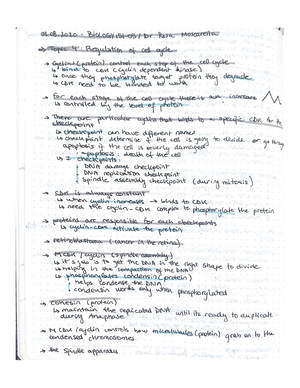 → Topic 4: Regulation of cell cycle
→ Cyclins (protein) control each step of the cell cycle
↳ binds to CDK (cyclin dependent kinase)
↳ once they phosphorylate target protein they degrade
↳ CDK need to be bonded to work
→ For each stage of the cell cycle there is an increase
↳ controlled by the level of protein
→ There are particular cyclins that bind to a specific CDK
checkpoint
↳ checkpoint can have different names
↳ checkpoint determine if the cell is going to divide or go
apoptosis if the cell is severely damaged
↳ apoptosis: death of the cell
↳ checkpoints:
DNA damage checkpoint
DNA replication checkpoint
spindle assembly checkpoint (during mitosis)
→ CDK is always constant
↳ when cyclin increases → binds to CDK
↳ need the cyclin-CDK complex to phosphorylate the protein
→ proteins are responsible for each checkpoints
↳ cyclin-CDK activate the protein
→ retinoblastoma (cancer in the retina)
→ M CDK/cyclin (spindle assembly)
↳ it's job is to get the DNA in the right shape to divide
↳ helping in the compaction of the DNA
↳ phosphorylates condensin (protein)
↳ helps condense the DNA
↳ condensin works only when phosphorylated
→ cohesin (protein)
↳ maintain the replicated DNA until its ready to duplicate
during Anaphase
→ M CDK/cyclin controls how microtubules (protein) grab on to the
condensed chromosomes
→ the Spindle apparatus